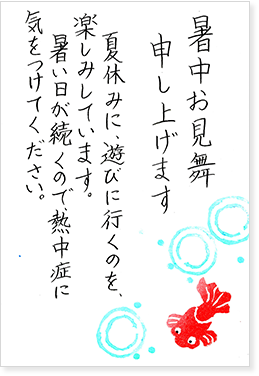 暑中お見舞
申し上げます
夏休みに、遊びに行くのを、
楽しみしています。
暑い日が続くので、熱中症に
気をつけてください。